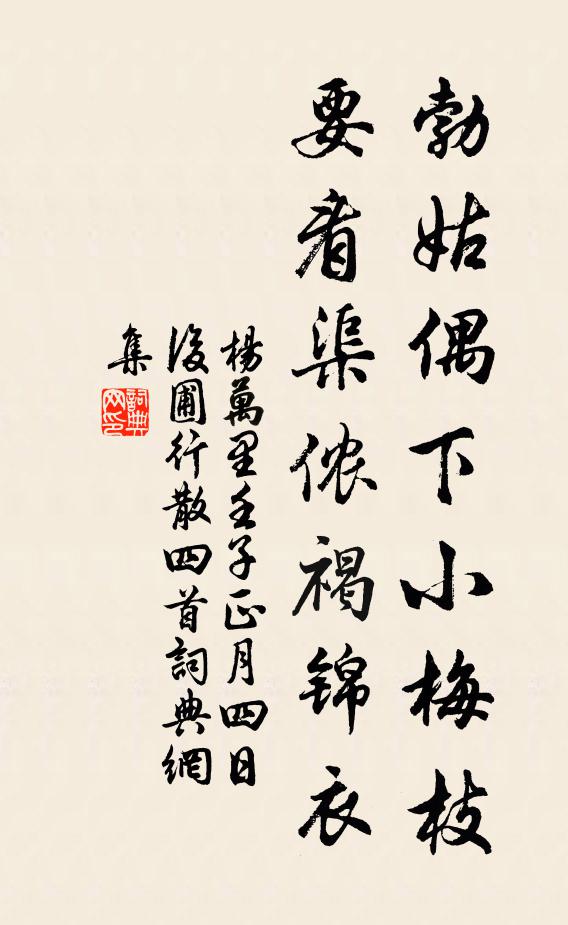 勃姑偶下小梅枝
要看渠侬褐锦衣
楊萬里壬子正月四日
後圃行散四首詞典網
集
詞典网印